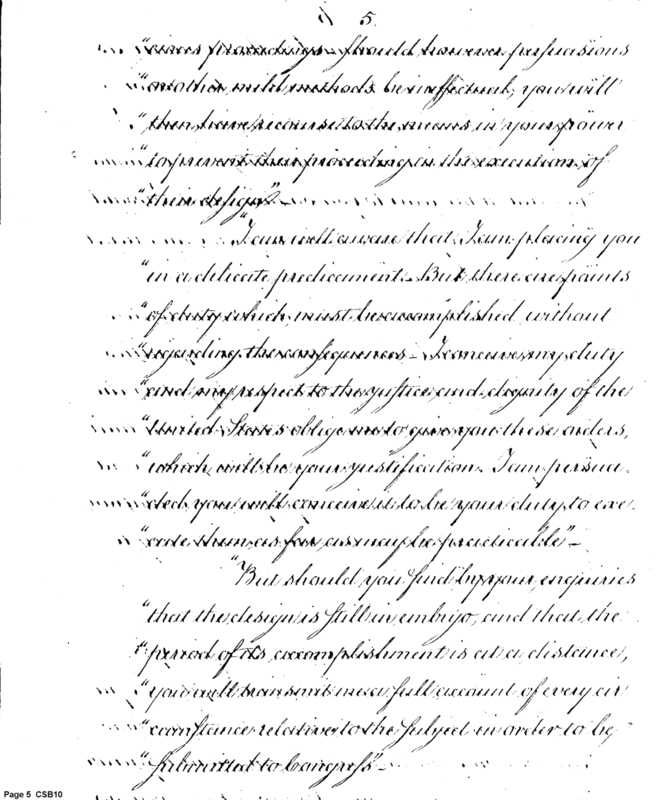 5
"cious proceedings – Should however persuasions
"or other mild methods be ineffectual, you will
"then have recourse to the means in your power
"to prevent their proceeding in the execution of
"their design" –
"I am well aware that I am placing you
"in a delicate predicament – But there are points
"of duty which must be accomplished without
"regarding the consequences – I conceive my duty
"and my respect to the justice and dignity of the
"United States oblige me to give you these orders,
"which will be your justification. I am persua-
"ded you will conceive it to be your duty to exe-
"cute them as far as may be practicable" –
"But should you find by your enquiries
"that the design is still in embrio, and that the
"period of its accomplishment is at a distance,
"you will transmit me a full account of every cir
"cumstance relative to the subject in order to be
"submitted to Congress" –
Page 5 CSB10